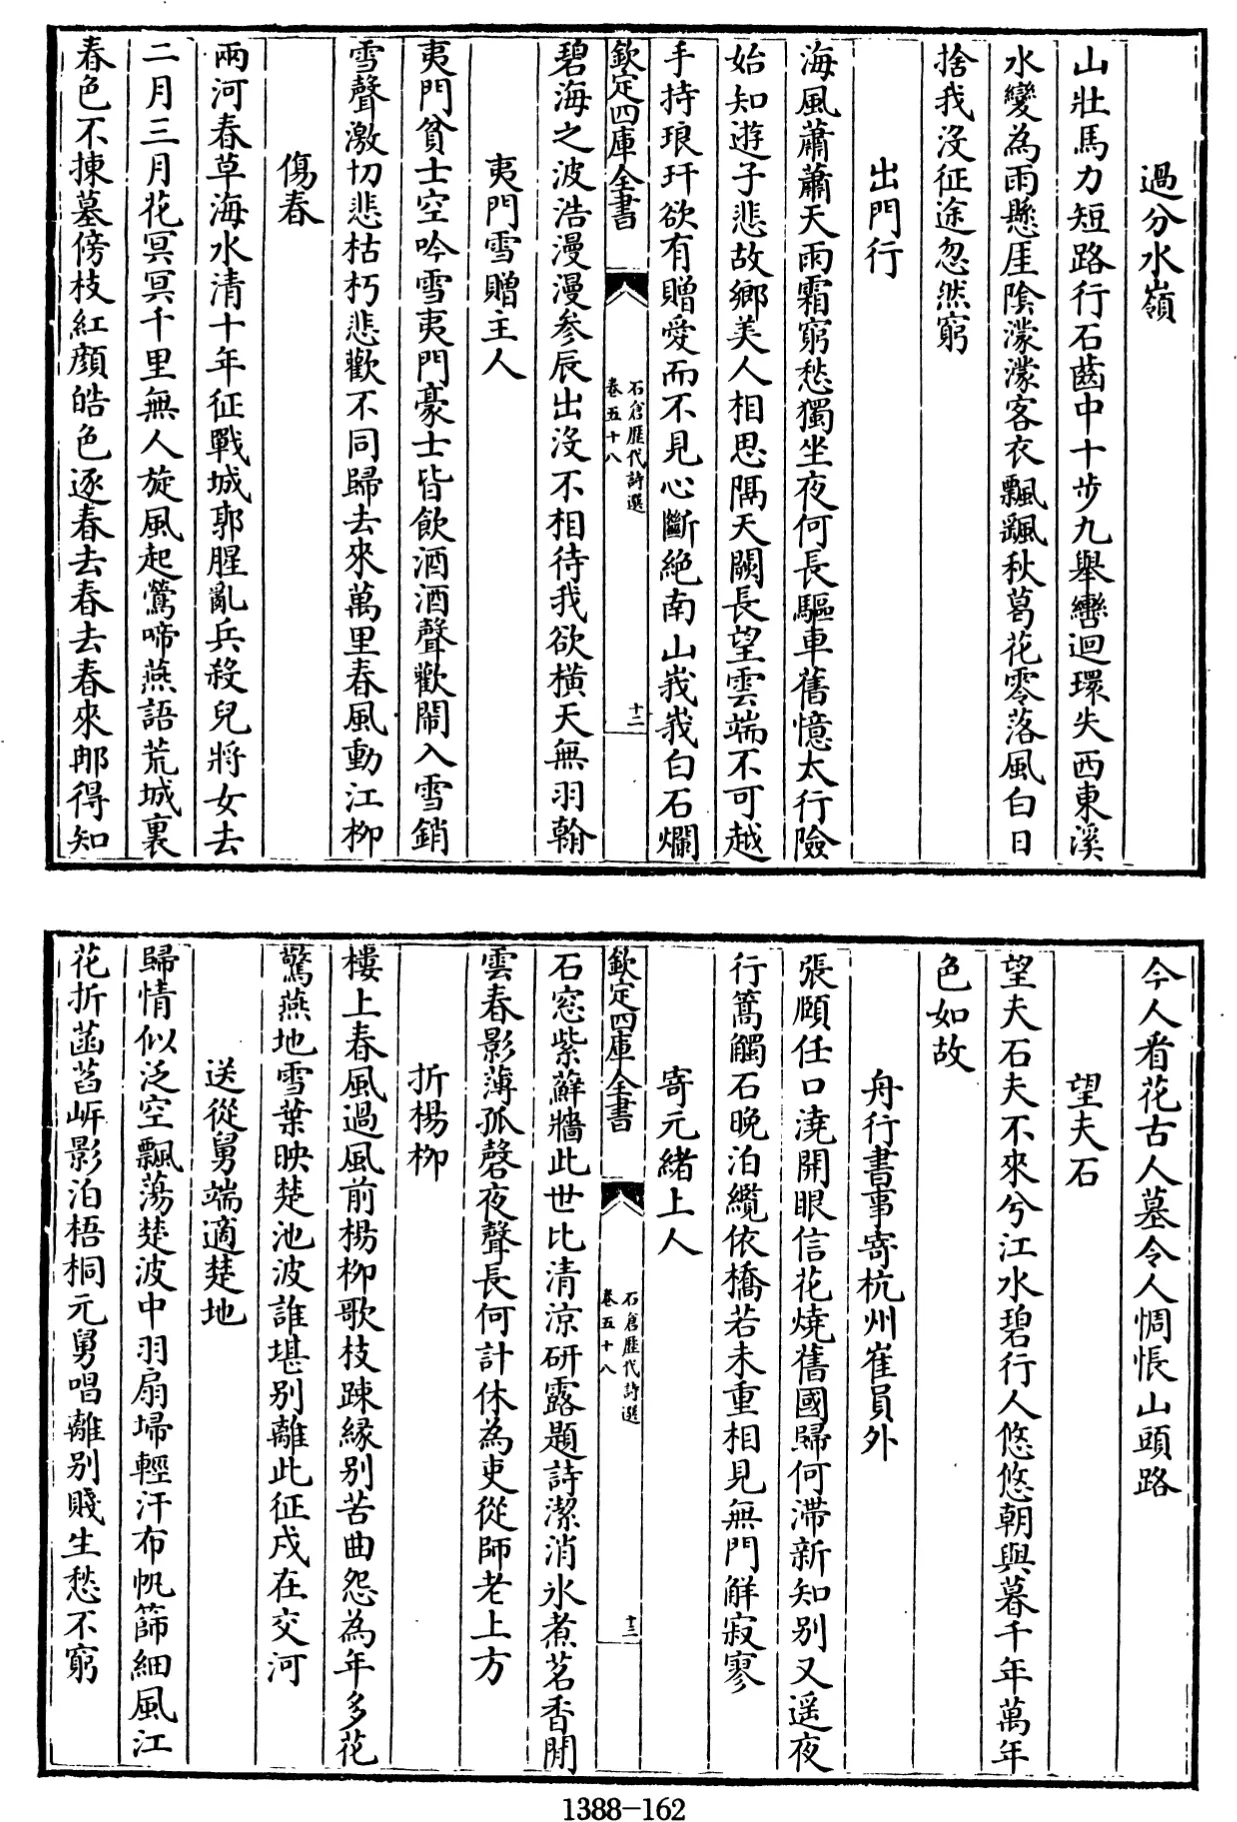 過分水嶺
山壯馬力短路行石齒中十步九舉轡迴環失西東溪
水變為雨懸崖陰濛濛客衣飄颻秋葛花零落風白日
捨我沒征途忽然窮
出門行
海風蕭蕭天雨霜窮愁獨坐夜何長驅車舊憶太行險
始知遊子悲故鄉美人相思隔天闕長望雲端不可越
手持琅玕欲有贈愛而不見心斷絶南山峩峩白石爛
欽定四庫全書
石倉歷代詩選
卷五十八
十二
碧海之波浩漫漫參辰出沒不相待我欲橫天無羽翰
夷門雪贈主人
夷門貧士空吟雪夷門豪士皆飲酒酒聲歡鬧入雪銷
雪聲激切悲枯朽悲歡不同歸去來萬里春風動江柳
傷春
兩河春草海水清十年征戰城郭腥亂兵殺兒將女去
二月三月花冥冥千里無人旋風起鶯啼燕語荒城裏
春色不揀墓傍枝紅顏皓色逐春去春去春來那得知
今人看花古人墓令人惆悵山頭路
望夫石
望夫石夫不來兮江水碧行人悠悠朝與暮千年萬年
色如故
舟行書事寄杭州崔員外
張頤任口澆開眼信花燒舊國歸何滯新知别又遥夜
行篙觸石晚泊纜依橋若未重相見無門解寂寥
寄元緒上人
欽定四庫全書
石倉歷代詩選
卷五十八
十三
石窓紫蘚牆此世比清涼研露題詩潔消氷煮茗香閒
雲春影薄孤磬夜聲長何計休為吏從師老上方
折楊柳
樓上春風過風前楊柳歌枝踈縁别苦曲怨為年多花
驚燕地雪葉映楚池波誰堪别離此征戍在交河
送從舅端適楚地
歸情似泛空飄蕩楚波中羽扇埽輕汗布帆篩細風江
花折菡萏㟁影泊梧桐元舅唱離别賤生愁不窮
1388-162